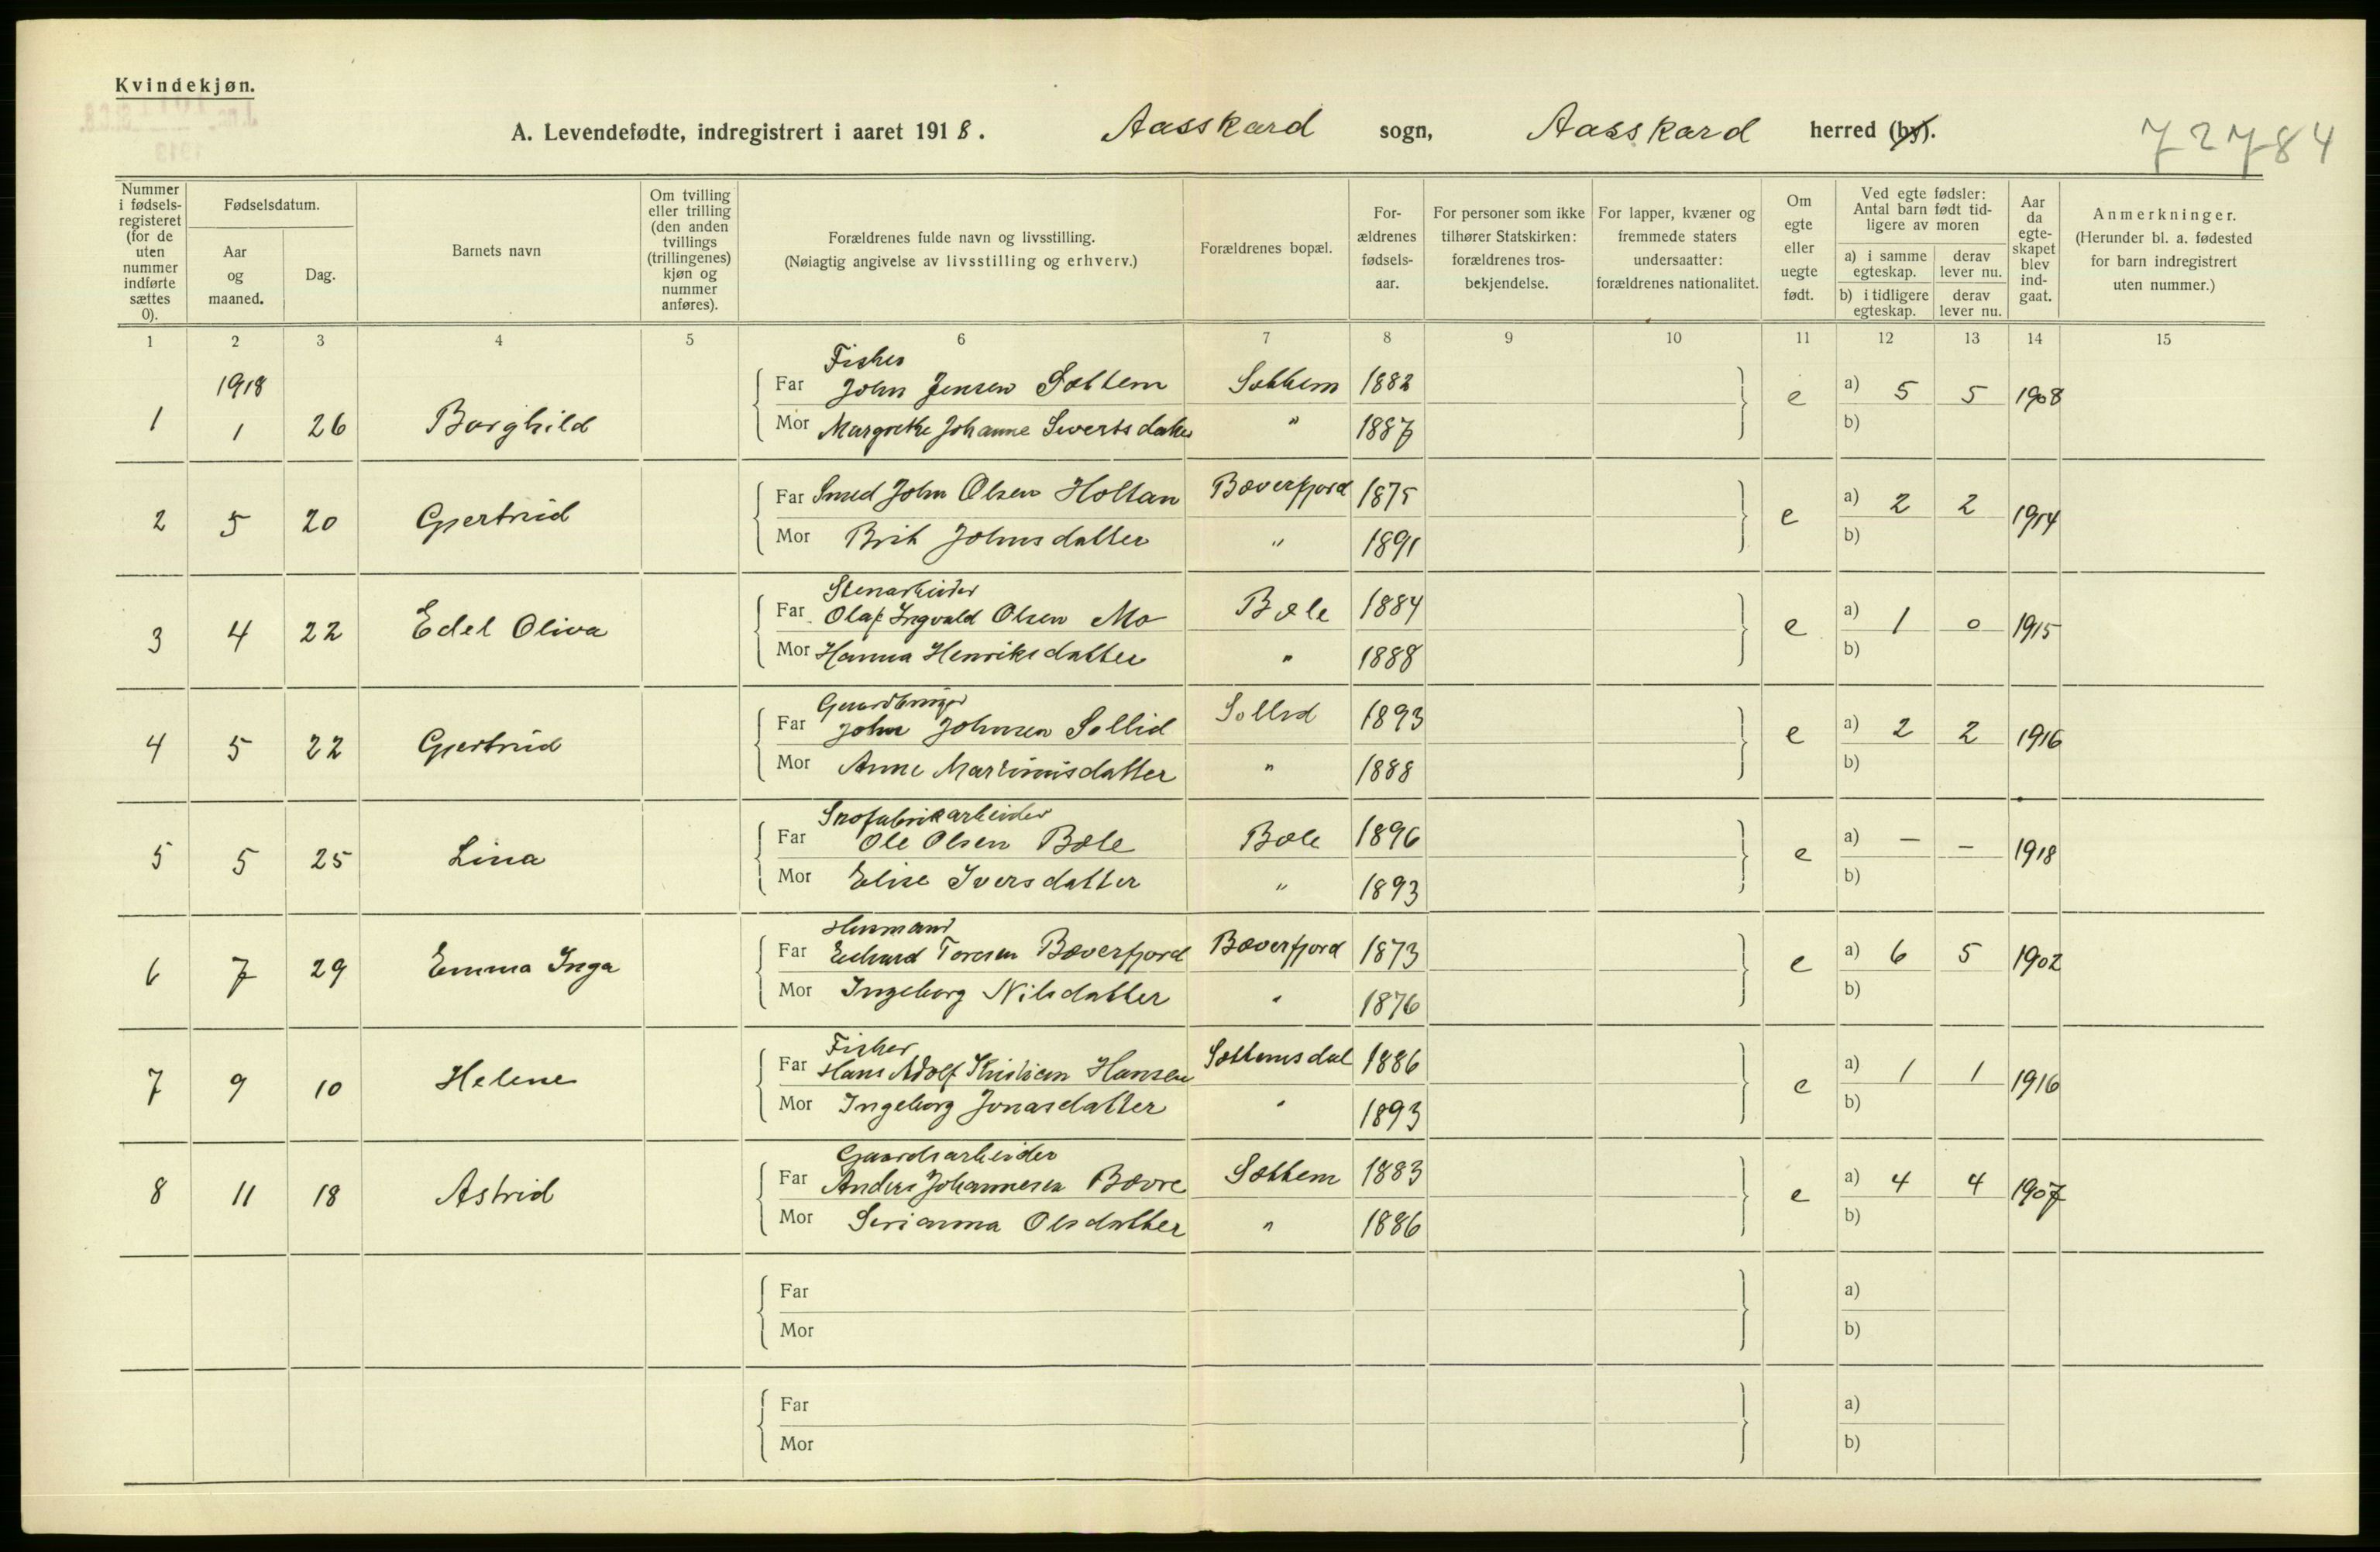 Kvindekjøn.
A. Levendefødte, indregistrert i aaret 1918. Aasskard sogn, Aasskard herred (by).
72784
Nummer i fødselsregisteret (for de uten nummer indførte sættes 0).
Fødselsdatum.
Aar og maaned.
Dag.
Barnets navn
Om tvilling eller trilling (den anden tvillings (trillingenes) kjøn og nummer anføres).
Forældrenes fulde navn og livsstilling.
(Nøiagtig angivelse av livsstilling og erhverv.)
Forældrenes bopæl.
Forældrenes fødselsaar.
For personer som ikke tilhører Statskirken: forældrenes trosbekjendelse.
For lapper, kvæner og fremmede staters undersaatter: forældrenes nationalitet.
Om egte eller uegte født.
Ved egte fødsler: Antal barn født tidligere av moren
a) i samme egteskap.
derav lever nu.
b) i tidligere egteskap.
derav lever nu.
Aar da egteskapet blev indgaat.
Anmerkninger.
(Herunder bl. a. fødested for barn indregistrert uten nummer.)
1 2 3 4 5 6 7 8 9 10 11 12 13 14 15
1918
Fisker
1 1 26 Borghild Far John Jensen Sættem Sættem 1882 e a) 5 5 1908
Mor Margrethe Johanne Sivertsdatter " 1887 b)
2 5 20 Gjertrud Far Smed John Olsen Holtan Bæverfjord 1875 e a) 2 2 1914
Mor Brit Johnsdatter " 1891 b)
Stenarbeider
3 4 22 Edel Oliva Far Olaf Ingvald Olsen Mo Bæle 1884 e a) 1 0 1915
Mor Hanna Henriksdatter " 1888 b)
Gaardbruger
4 5 22 Gjertrud Far John Johnsen Sollid Sollid 1893 e a) 2 2 1916
Mor Anne Martinusdatter " 1888 b)
Skofabrikarbeider
5 5 25 Lina Far Ole Olsen Bæle Bæle 1896 e a) – – 1918
Mor Elise Iversdatter " 1893 b)
Husmand
6 7 29 Emma Inga Far Toresen Bæverfjord Bæverfjord 1873 e a) 6 5 1902
Mor Ingeborg Nilsdatter " 1876 b)
Fisker
7 9 10 Helene Far Hans Adolf Kristian Hansen Sættemsdal 1886 e a) 1 1 1916
Mor Ingeborg Jonasdatter " 1893 b)
Gaardsarbeider
8 11 18 Astrid Far Anders Johannesen Bævre Sættem 1883 e a) 4 4 1907
Mor Serianna Olsdatter " 1886 b)
Far a)
Mor b)
Far a)
Mor b)